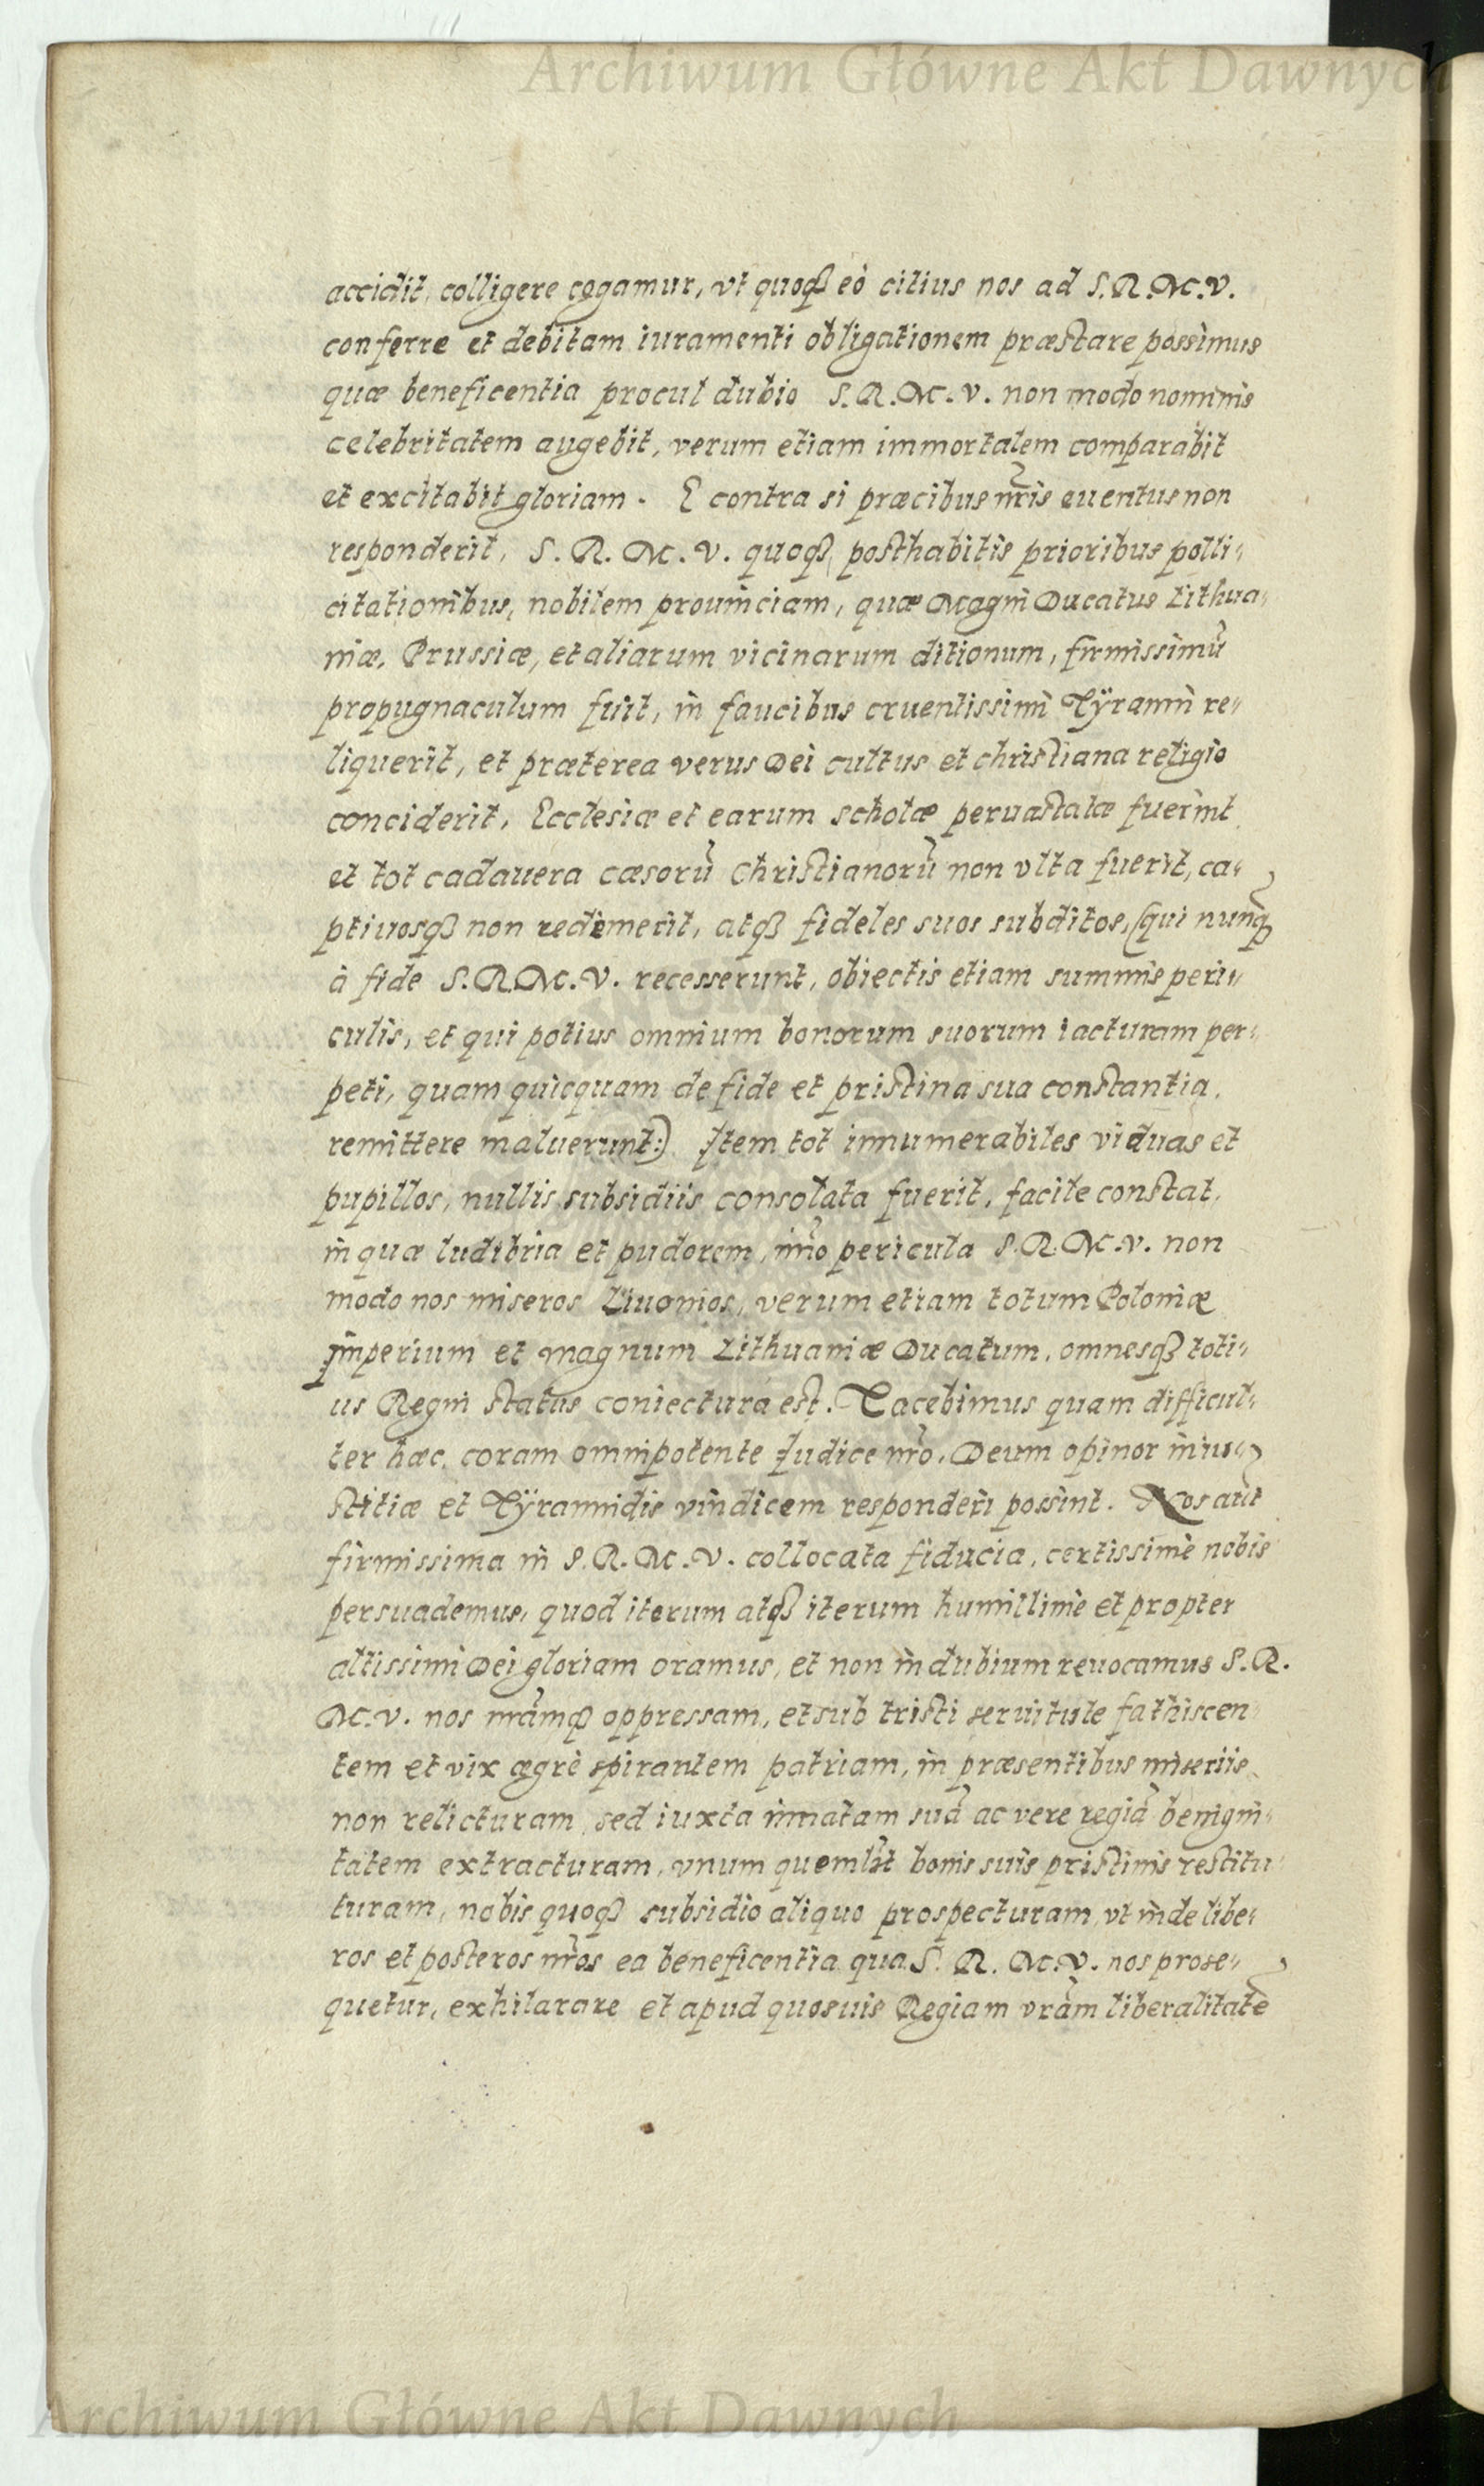 Archiwum Główne Akt Dawnych
accidit, colligere cogamur, vt quoqȝ eò citius nos ad S.R.M.V.
conferre et debitam iuramenti obligationem præstare possimus
quæ beneficentia procul dubio S.R.M.V. non modo nominis
celebritatem augebit, verum etiam immortalem comparabit
et excitabit gloriam. E contra si præcibus nr̃is euentus non
responderit, S.R.M.V. quoqȝ posthabitis prioribus polli⸗
citationibus, nobilem prouinciam, quæ Magni Ducatus Lithua⸗
niæ, Prussiæ, et aliarum vicinarum ditionum, firmissimũ
propugnaculum fuit, in faucibus cruentissimi Tÿranni re⸗
liquerit, et præterea verus Dei cultus et christiana religio
conciderit, Ecclesiæ et earum scholæ peruastatæ fuerint
et tot cadauera cæsorũ Christianorũ non vlta fuerit, ca⸗
ptiuosqȝ non redimerit, atqȝ fideles suos subditos, (qui nunq̃
à fide S.R.M.V. recesserunt, obiectis etiam summis peri⸗
culis, et qui potius omnium bonorum suorum iacturam per⸗
peti, quam quicquam de fide et pristina sua constantia,
remittere maluerunt:) Item tot innumerabiles viduas et
pupillos, nullis subsidiis consolata fuerit, facile constat,
in quæ ludibria et pudorem, im̃o pericula S.R.M.V. non
modo nos miseros Liuonios, verum etiam totum Poloniæ
Imperium et magnum Lithuaniæ Ducatum, omnesqȝ toti⸗
us Regni status coniectura est. Tacebimus quam difficul⸗
ter hæc, coram omnipotente Iudice nr̃o, Deum opinor iniu⸗
stitiæ et Tÿrannidis vindicem responderi possint. Nos aut̃
firmissima in S.R.M.V. collocata fiducia, certissimè nobis
persuademus, quod iterum atqȝ iterum humillimè et propter
altissimi Dei gloriam oramus, et non in dubium reuocamus S.R.
M.V. nos nr̃amqȝ oppressam, et sub tristi seruitute fathiscen⸗
tem et vix ægrè spirantem patriam, in præsentibus miseriis
non relicturam, sed iuxta innatam suã ac vere regiã benigni⸗
tatem extracturam, vnum quemlĩt bonis suis pristinis restitu⸗
turam, nobis quoqȝ subsidio aliquo prospecturam, vt inde libe⸗
ros et posteros nr̃os ea beneficentia qua S.R.M.V. nos prose⸗
quetur, exhilarare et apud quosuis Regiam vr̃am liberalitatẽ
Archiwum Główne Akt Dawnych